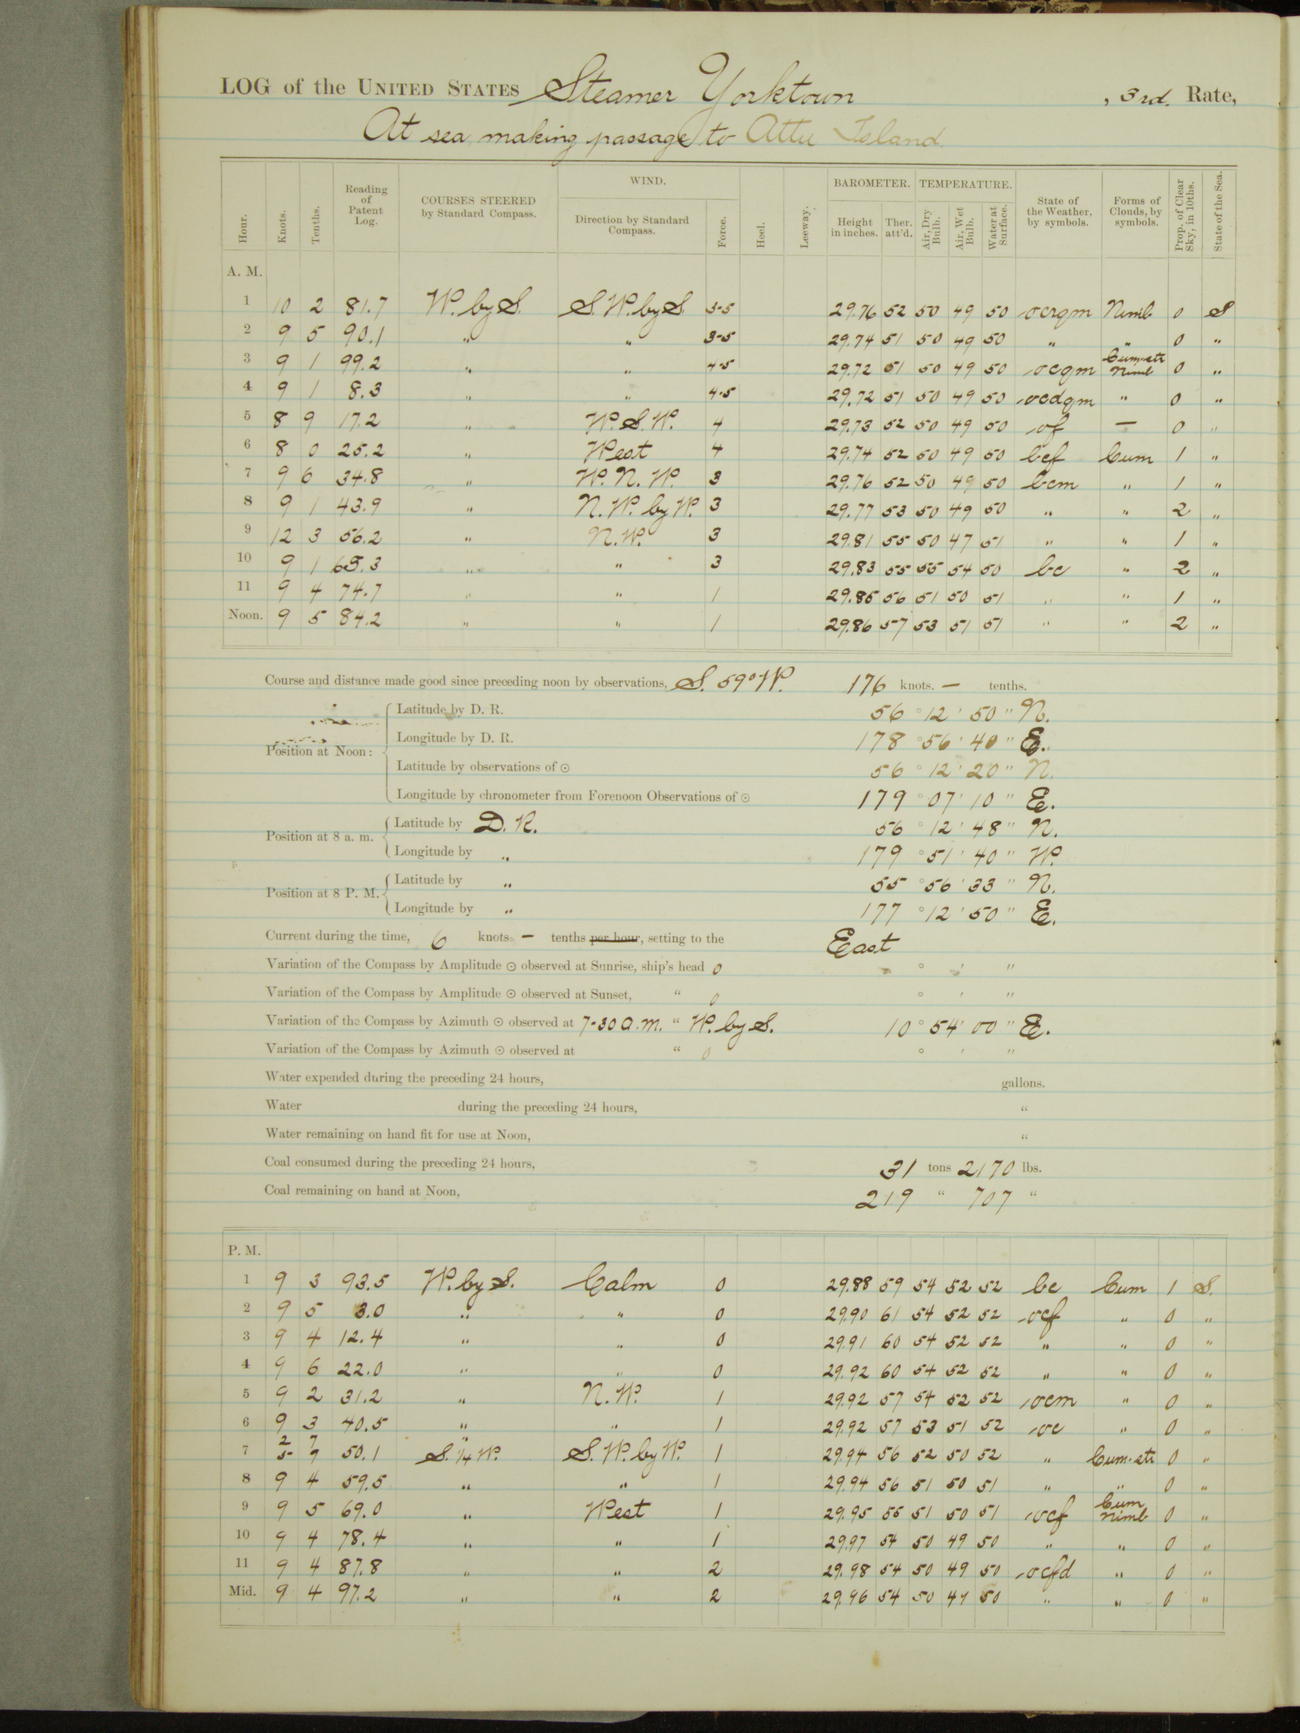 LOG of the UNITED STATES Steamer Yorktown, 3rd. Rate,
At sea, making passage to Attu Island
Hour. Knots. Tenths. Reading of Patent Log. COURSES STEERED by Standard Compass. WIND. Direction by Standard Compass. Force. Heel. Leeway. BAROMETER. Height in inches. Ther. att'd. TEMPERATURE. Air, Dry Bulb. Air, Wet Bulb. Water at Surface. State of the Weather, by symbols. Forms of Clouds, by symbols. Prop. of Clear Sky, in 10ths. State of the Sea.
A. M.
1 10 2 81.7 W. by S. S. W. by S. 3-5 29.76 52 50 49 50 ocrqm Nimb 0 S
2 9 5 90.1 " " 3-5 29.74 51 50 49 50 " " 0 "
3 9 1 99.2 " " 4-5 29.72 51 50 49 50 ocqm Cum-str Nimb 0 "
4 9 1 8.3 " " 4-5 29.72 51 50 49 50 ocdqm " 0 "
5 8 9 17.2 " W. S. W. 4 29.73 52 50 49 50 of — 0 "
6 8 0 25.2 " West 4 29.74 52 50 49 50 bcf Cum 1 "
7 9 6 34.8 " W. N. W. 3 29.76 52 50 49 50 bcm " 1 "
8 9 1 43.9 " N. W. by W. 3 29.77 53 50 49 50 " " 2 "
9 12 3 56.2 " N. W. 3 29.81 55 50 47 51 " " 1 "
10 9 1 65.3 " " 3 29.83 55 55 54 50 bc " 2 "
11 9 4 74.7 " " 1 29.85 56 51 50 51 " " 1 "
Noon. 9 5 84.2 " " 1 29.86 57 53 51 51 " " 2 "
Course and distance made good since preceding noon by observations, S. 59° W. 176 knots. — tenths.
Position at Noon:
Latitude by D. R. 56 ° 12 ' 50 " N.
Longitude by D. R. 178 ° 56 ' 40 " E.
Latitude by observations of ☉ 56 ° 12 ' 20 " N.
Longitude by chronometer from Forenoon Observations of ☉ 179 ° 07 ' 10 " E.
Position at 8 a. m. Latitude by D. R. 56 ° 12 ' 48 " N.
Longitude by " 179 ° 51 ' 40 " W.
Position at 8 P. M. Latitude by " 55 ° 56 ' 33 " N.
Longitude by " 177 ° 12 ' 50 " E.
Current during the time, 6 knots — tenths per hour, setting to the East
Variation of the Compass by Amplitude ☉ observed at Sunrise, ship's head 0 ° ' "
Variation of the Compass by Amplitude ☉ observed at Sunset, " 0 ° ' "
Variation of the Compass by Azimuth ☉ observed at 7-30 a.m. " W. by S. 10 ° 54 ' 00 " E.
Variation of the Compass by Azimuth ☉ observed at " 0 ° ' "
Water expended during the preceding 24 hours, gallons.
Water during the preceding 24 hours, "
Water remaining on hand fit for use at Noon, "
Coal consumed during the preceding 24 hours, 31 tons 2170 lbs.
Coal remaining on hand at Noon, 219 " 707 "
P. M.
1 9 3 93.5 W. by S. Calm 0 29.88 59 54 52 52 bc Cum 1 S.
2 9 5 3.0 " " 0 29.90 61 54 52 52 ocf " 0 "
3 9 4 12.4 " " 0 29.91 60 54 52 52 " " 0 "
4 9 6 22.0 " " 0 29.92 60 54 52 52 " " 0 "
5 9 2 31.2 " N. W. 1 29.92 57 54 52 52 ocm " 0 "
6 9 3 40.5 " " 1 29.92 57 53 51 52 oc " 0 "
2 7 "
7 5 9 50.1 S. 1/4 W. S. W. by W. 1 29.94 56 52 50 52 " Cum-str 0 "
8 9 4 59.5 " " 1 29.94 56 51 50 51 " " 0 "
9 9 5 69.0 " West 1 29.95 55 51 50 51 ocf Cum Nimb 0 "
10 9 4 78.4 " " 1 29.97 54 50 49 50 " " 0 "
11 9 4 87.8 " " 2 29.98 54 50 49 50 ocfd " 0 "
Mid. 9 4 97.2 " " 2 29.96 54 50 49 50 " " 0 "